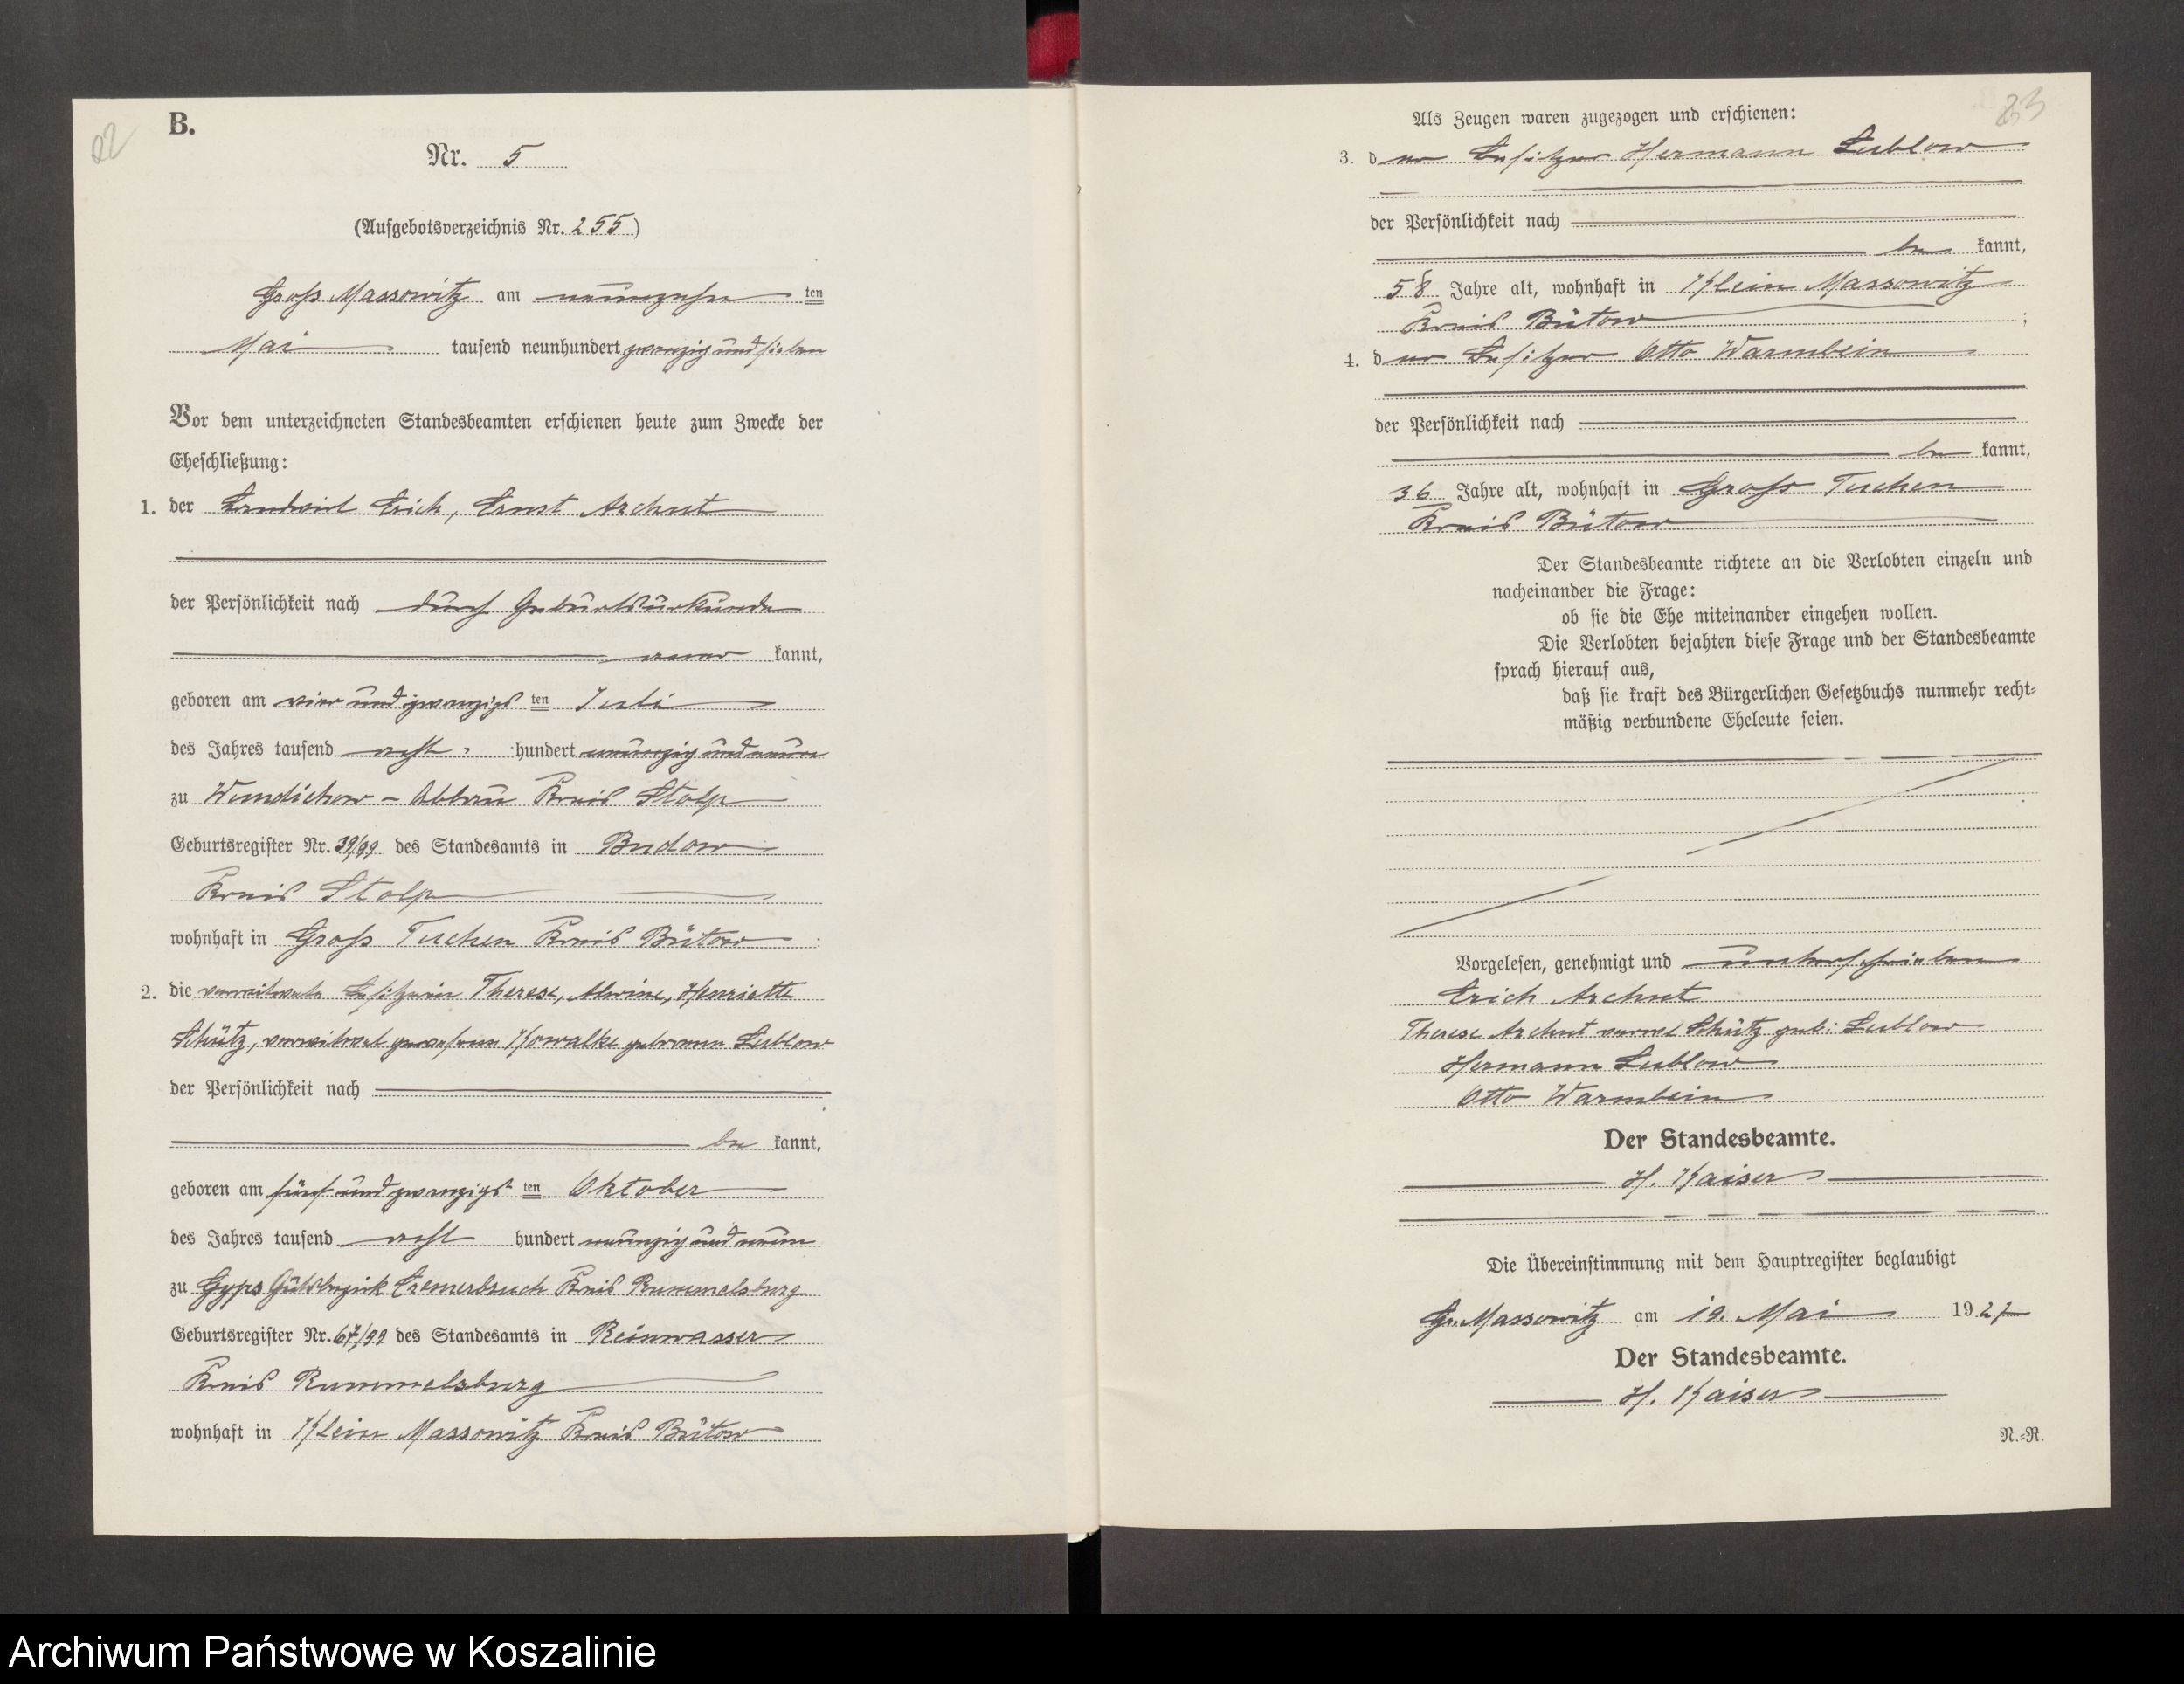 22
B.
Nr. 5
(Aufgebotsverzeichnis Nr. 255)
Groß Massowitz am neunzehn ten
Mai tausend neunhundert zwanzig und sieben
Vor dem unterzeichneten Standesbeamten erschienen heute zum Zwecke der
Eheschließung:
1. der Landwirt Erich, Ernst Archut
der Persönlichkeit nach durch Geburtsurkunde
aner kannt,
geboren am vier und zwanzigs ten Juli
des Jahres tausend acht hundert neunzig und neun
zu Wundichow - Abbau Kreis Stolp
Geburtsregister Nr. 39/99 des Standesamts in Budow
Kreis Stolp
wohnhaft in Groß Tuchen Kreis Bütow
2. die verwitwete Besitzerin Therese, Alwine, Henriette
Schütz, verwitwet gewesene Kowalke geborenen Lublow
der Persönlichkeit nach
be kannt,
geboren am fünf und zwanzigs ten Oktober
des Jahres tausend acht hundert neunzig und neun
zu Gyps Gutsbezirk Cremerbruch Kreis Rummelsburg
Geburtsregister Nr. 67/99 des Standesamts in Reinwasser
Kreis Rummelsburg
wohnhaft in Klein Massowitz Kreis Bütow
23
Als Zeugen waren zugezogen und erschienen:
3. der Besitzer Hermann Lublow
der Persönlichkeit nach
be kannt,
58 Jahre alt, wohnhaft in Klein Massowitz
Kreis Bütow ;
4. der Besitzer Otto Warmbein
der Persönlichkeit nach
be kannt,
36 Jahre alt, wohnhaft in Groß Tuchen
Kreis Bütow
Der Standesbeamte richtete an die Verlobten einzeln und
nacheinander die Frage:
ob sie die Ehe miteinander eingehen wollen.
Die Verlobten bejahten diese Frage und der Standesbeamte
sprach hierauf aus,
daß sie kraft des Bürgerlichen Gesetzbuchs nunmehr recht-
mäßig verbundene Eheleute seien.
Vorgelesen, genehmigt und unterschrieben
Erich Archut
Therese Archut verw. Schütz geb: Lublow
Hermann Lublow
Otto Warmbein
Der Standesbeamte.
H. Kaiser
Die Übereinstimmung mit dem Hauptregister beglaubigt
Gr. Massowitz am 19. Mai 1927
Der Standesbeamte.
H. Kaiser
N.-R.
Archiwum Państwowe w Koszalinie